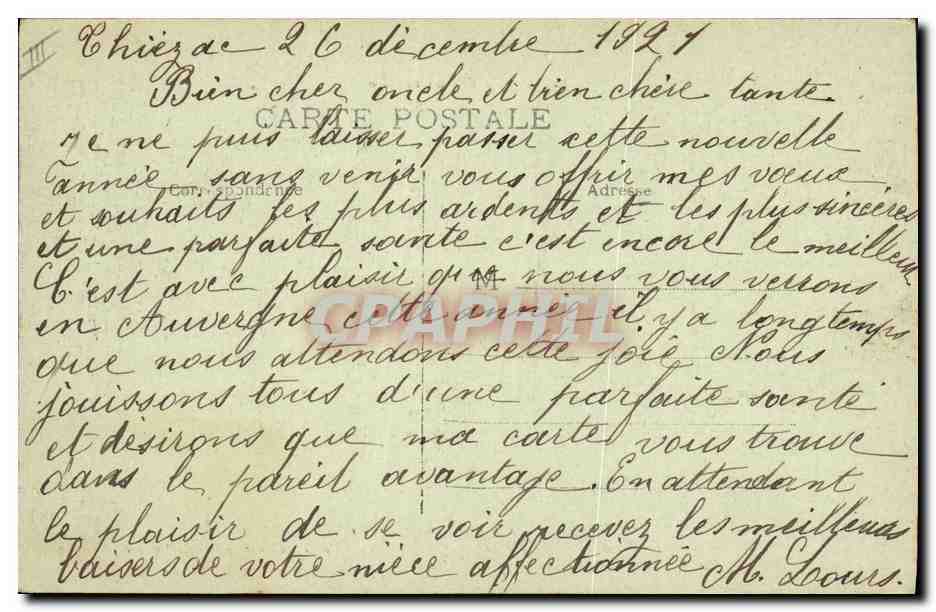 III
Thiézac 26 décembre 1921
Bien cher oncle et bien chère tante.
CARTE POSTALE
Je ne puis laisser passer cette nouvelle
année sans venir vous offrir mes vœux
Correspondance Adresse
et souhaits les plus ardents et les plus sincères
et une parfaite santé c'est encore le meilleur
C'est avec plaisir que nous vous verrons
M
en Auvergne cette année il y a longtemps
CPAPHIL
que nous attendons cette joie Nous
jouissons tous d'une parfaite santé
et désirons que ma carte vous trouve
dans le pareil avantage. En attendant
le plaisir de se voir recevez les meilleurs
baisers de votre nièce affectionnée M. Lours.